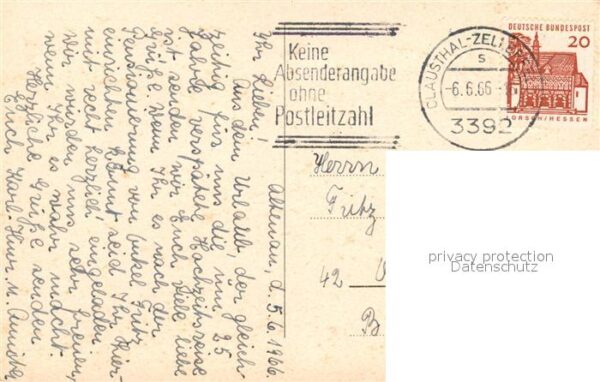 Altenau, d. 5.6.1966.
Ihr Lieben!
Aus dem Urlaub, der gleich-
zeitig für uns die um 25
Jahre verspätete Hochzeitsreise
ist senden wir Euch viele liebe
Grüße. Wenn Ihr es nach der
Pensionierung von Onkel Fritz
einrichten könnt seid Ihr hier-
mit recht herzlich eingeladen
wir würden uns sehr freuen,
wenn Ihr es wahr macht.
Herzliche Grüße senden
Euch Karl Heinz u. Annide
Keine
Absenderangabe
ohne
Postleitzahl
CLAUSTHAL-ZELLERF
S
-6.6.66-
3392
DEUTSCHE BUNDESPOST
20
LORSCH/HESSEN
Herrn
Fritz
42
privacy protection
Datenschutz